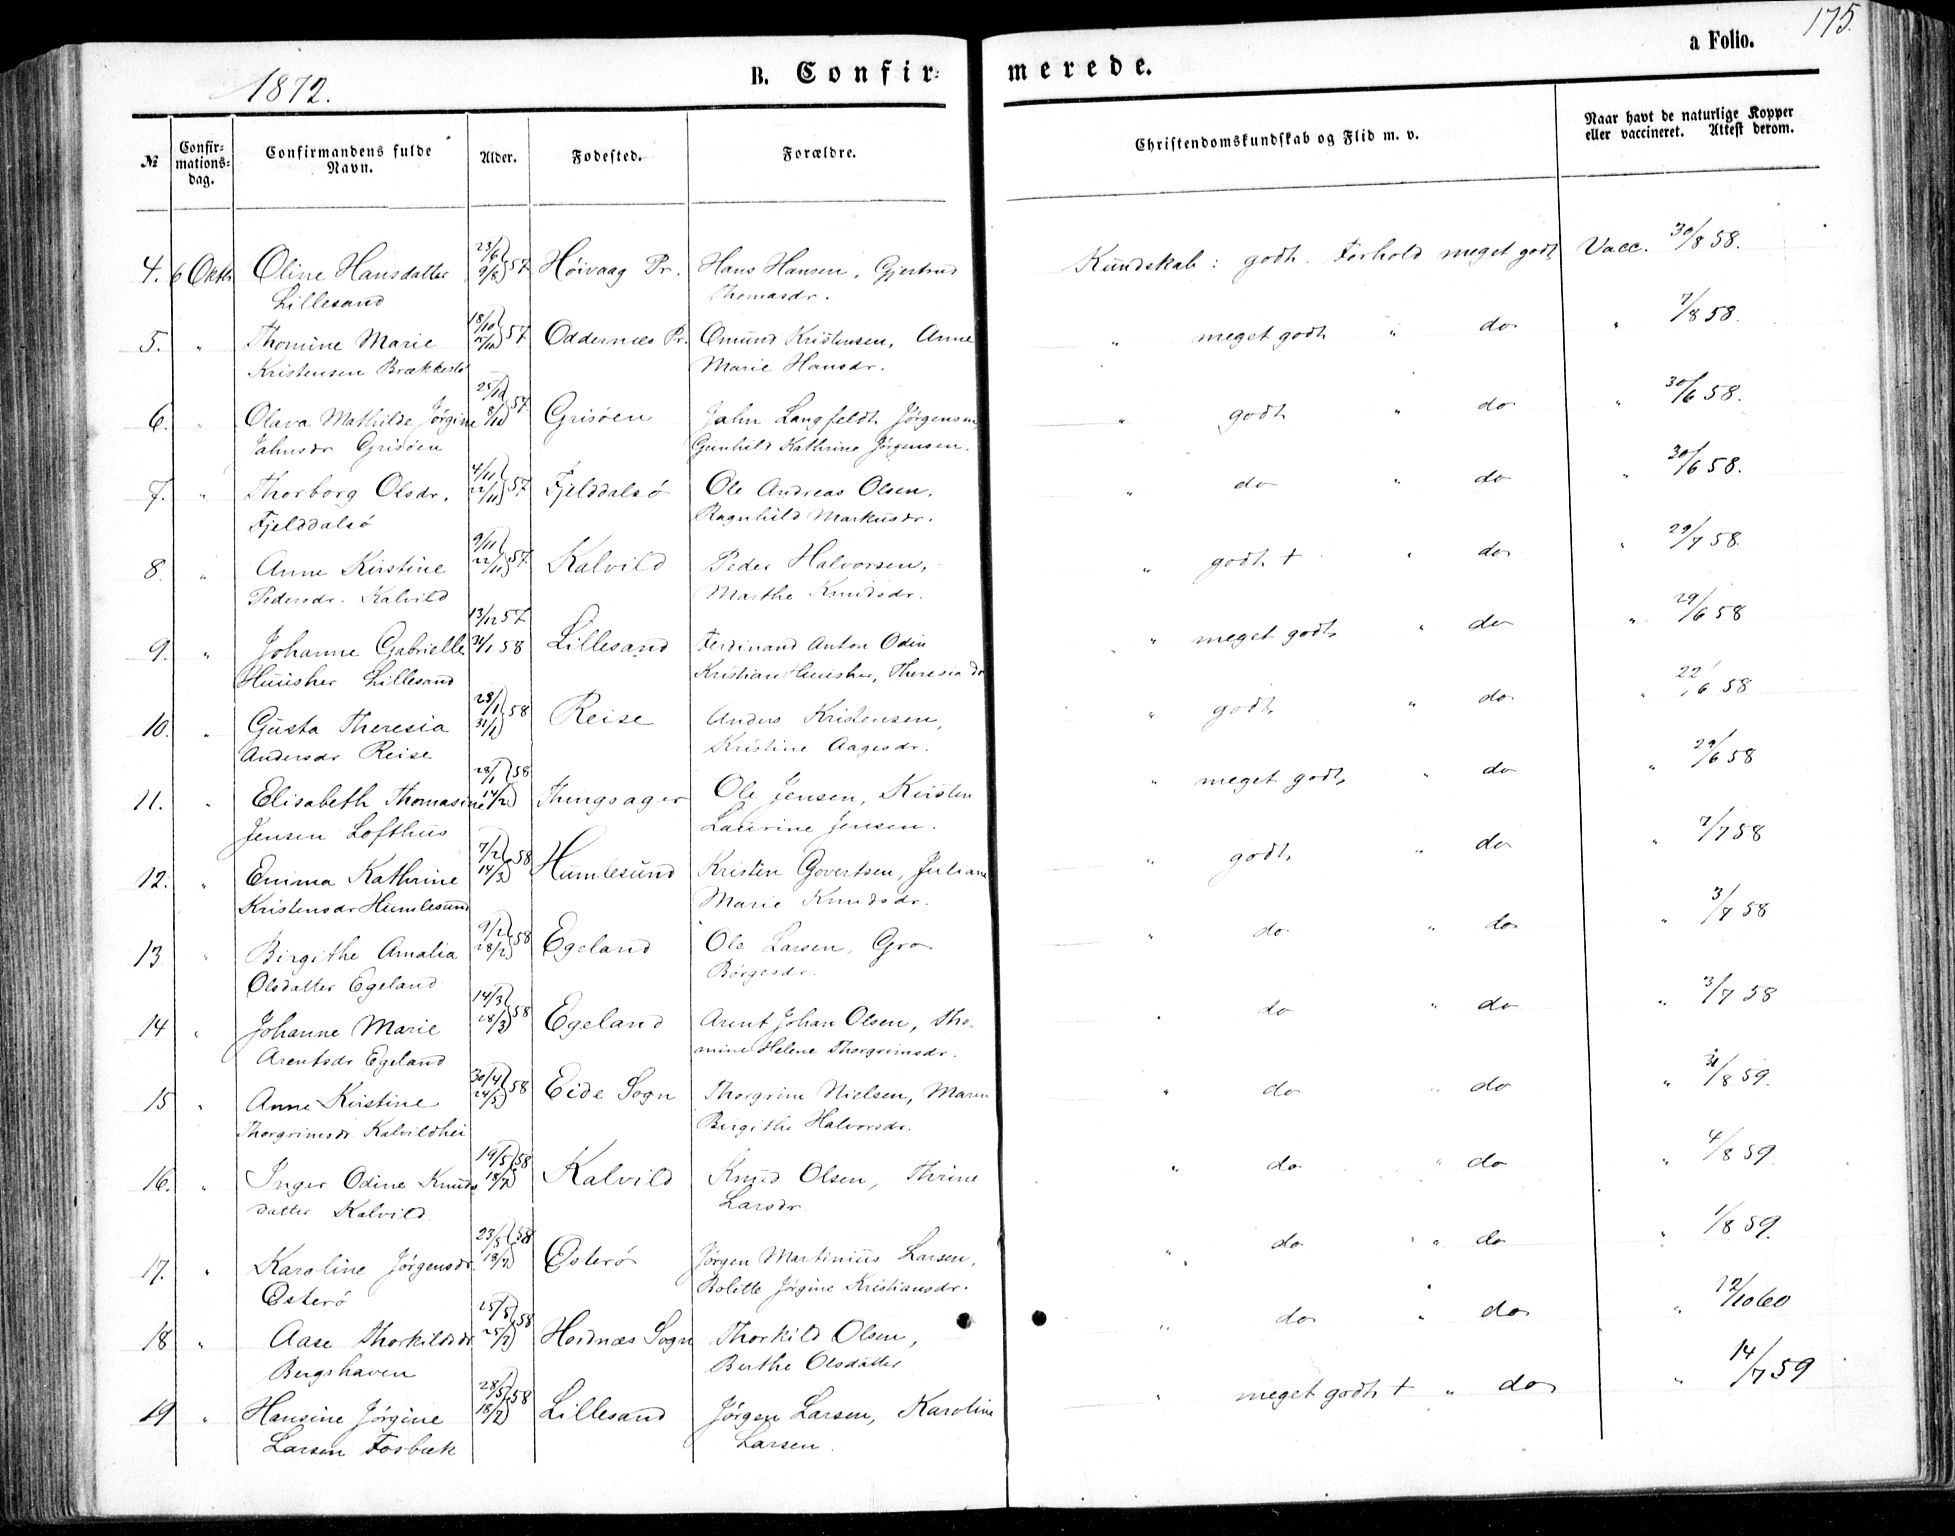 175.
a Folio.
1872.
B. Confirmerede.
№ Confirmationsdag. Confirmandens fulde Navn. Alder. Fødested. Forældre. Christendomskundskab og Flid m. v. Naar havt de naturlige Kopper eller vaccineret. Attest derom.
4. 6 Oktr. Oline Hansdatter 23/6 57 Høivaag Pr. Hans Hansen, Gjertrud Kundskab: godt. Forhold meget godt Vacc. 30/8 58.
Lillesand Thomasdr.
5. " Thomine Marie 18/10 57 Oddernæs Pr. Omund Kristensen, Anne " meget godt " do " 7/8 58.
Kristensen Brækkestø Marie Hansdr.
6. " Olava Mathilde Jørgine 25/10 57 Grisøen Jahn Langfeldt Jørgensen " godt " do " 30/6 58.
Jahnsdr Grisøen Gunhild Kathrine Jørgensen.
7. " Thorborg Olsdr. 4/11 22/11 57 Fjelddalsø Ole Andreas Olsen, " do " do " 30/6 58.
Fjelddalsø Ragnhild Markusdr.
8. " Anne Kirstine 9/11 22/11 57 Kalvild Peder Halvorsen, " godt + " do " 29/7 58.
Pedersdr. Kalvild Marthe Knudsdr.
13/12 57
9. " Johanne Gabrielle 31/1 58 Lillesand Ferdinand Anton Odin " meget godt " do " 29/6 58
Huusher Lillesand Kristian Huusher, Theresia do
10. " Gusta Theresia 23/1 31/1 58 Reise Anders Kristensen, " godt " do " 22/6 58
Andersdr Reise Kristine Aagesdr.
11. " Elisabeth Thomasine 28/1 14/2 58 Thingsager Ole Jensen, Kirsten " meget godt " do " 29/6 58
Jensen Lofthus Laurine Jensen.
12. " Emma Kathrine 7/2 14/3 58 Humlesund Kristen Govertsen, Juliane " godt " do " 7/7 58
Kristensdr Humlesund Marie Knudsdr.
13 " Birgithe Amalia 9/2 28/2 58 Egeland Ole Larsen, Gro " do " do " 3/7 58
Olsdatter Egeland Børgesdr.
14 " Johanne Marie 14/3 28/3 58 Egeland Arent Johan Olsen, Tho- " do " do " 3/7 58
Arentsdr Egeland mine Helene Thorgrimsdr.
15 " Anne Kirstine 30/4 24/5 58 Eide Sogn Thorgrim Nielsen, Maren " do " do " 31/8 59.
Thorgrimsdr Kalvildhei Birgithe Halvorsdr.
16. " Inger Odine Knuds 19/5 18/7 58 Kalvild Knud Olsen, Thrine " do " do " 4/8 59
datter Kalvild. Larsdr
17. " Karoline Jørgensdr. 23/5 18/7 58 Østerø Jørgen Martinius Larsen, " do " do " 1/8 59.
Østerø Bolette Jørgine Kristiansdr.
18 " Aase Thorkildsdr 25/5 25/7 58 Homnæs Sogn Thorkild Olsen, " do " do " 12/10 60
Bergshaven Berthe Olsdatter
19 " Hansine Jørgine 28/5 18/7 58 Lillesand Jørgen Larsen, Karoline " meget godt + " do " 14/7 59
Larsen Fosbæk Larsen.